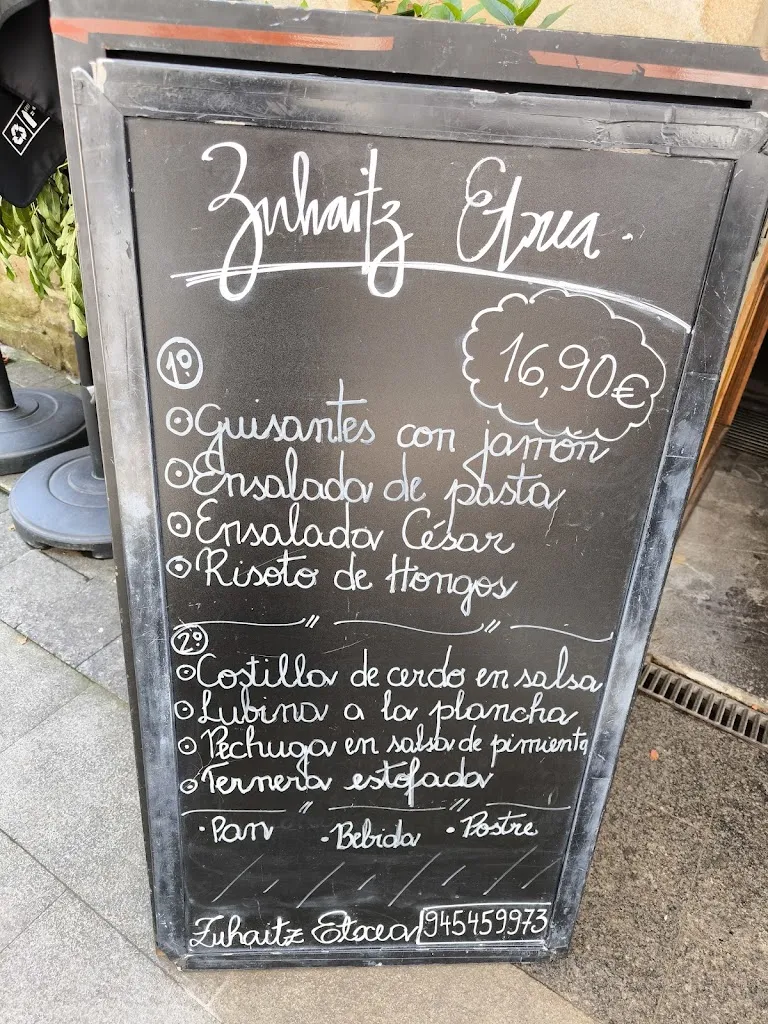 Zuhaitz Etxea.
16,90€
1º
Guisantes con jamón
Ensalada de pasta
Ensalada César
Risoto de Hongos
2º
Costilla de cerdo en salsa
Lubina a la plancha
Pechuga en salsa de pimienta
Ternera estofada
· Pan · Bebida · Postre
Zuhaitz Etxea 945459973